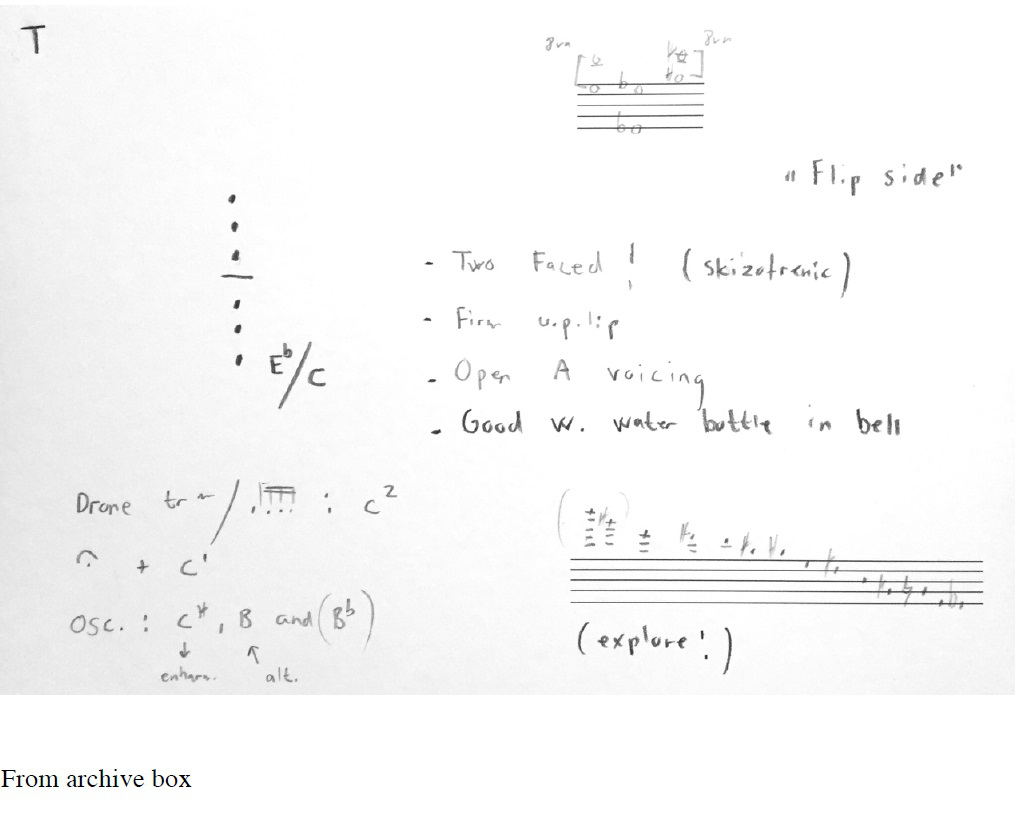 T
8va 8va
"Flip side"
- Two Faced! (skizofrenic)
- Firm u.p. lip
- Open A voicing
- Good w. water bottle in bell
E♭/C
Drone tr / : C²
+ C'
Osc. : C#, B and (B♭)
enharm. alt.
(explore!)
From archive box